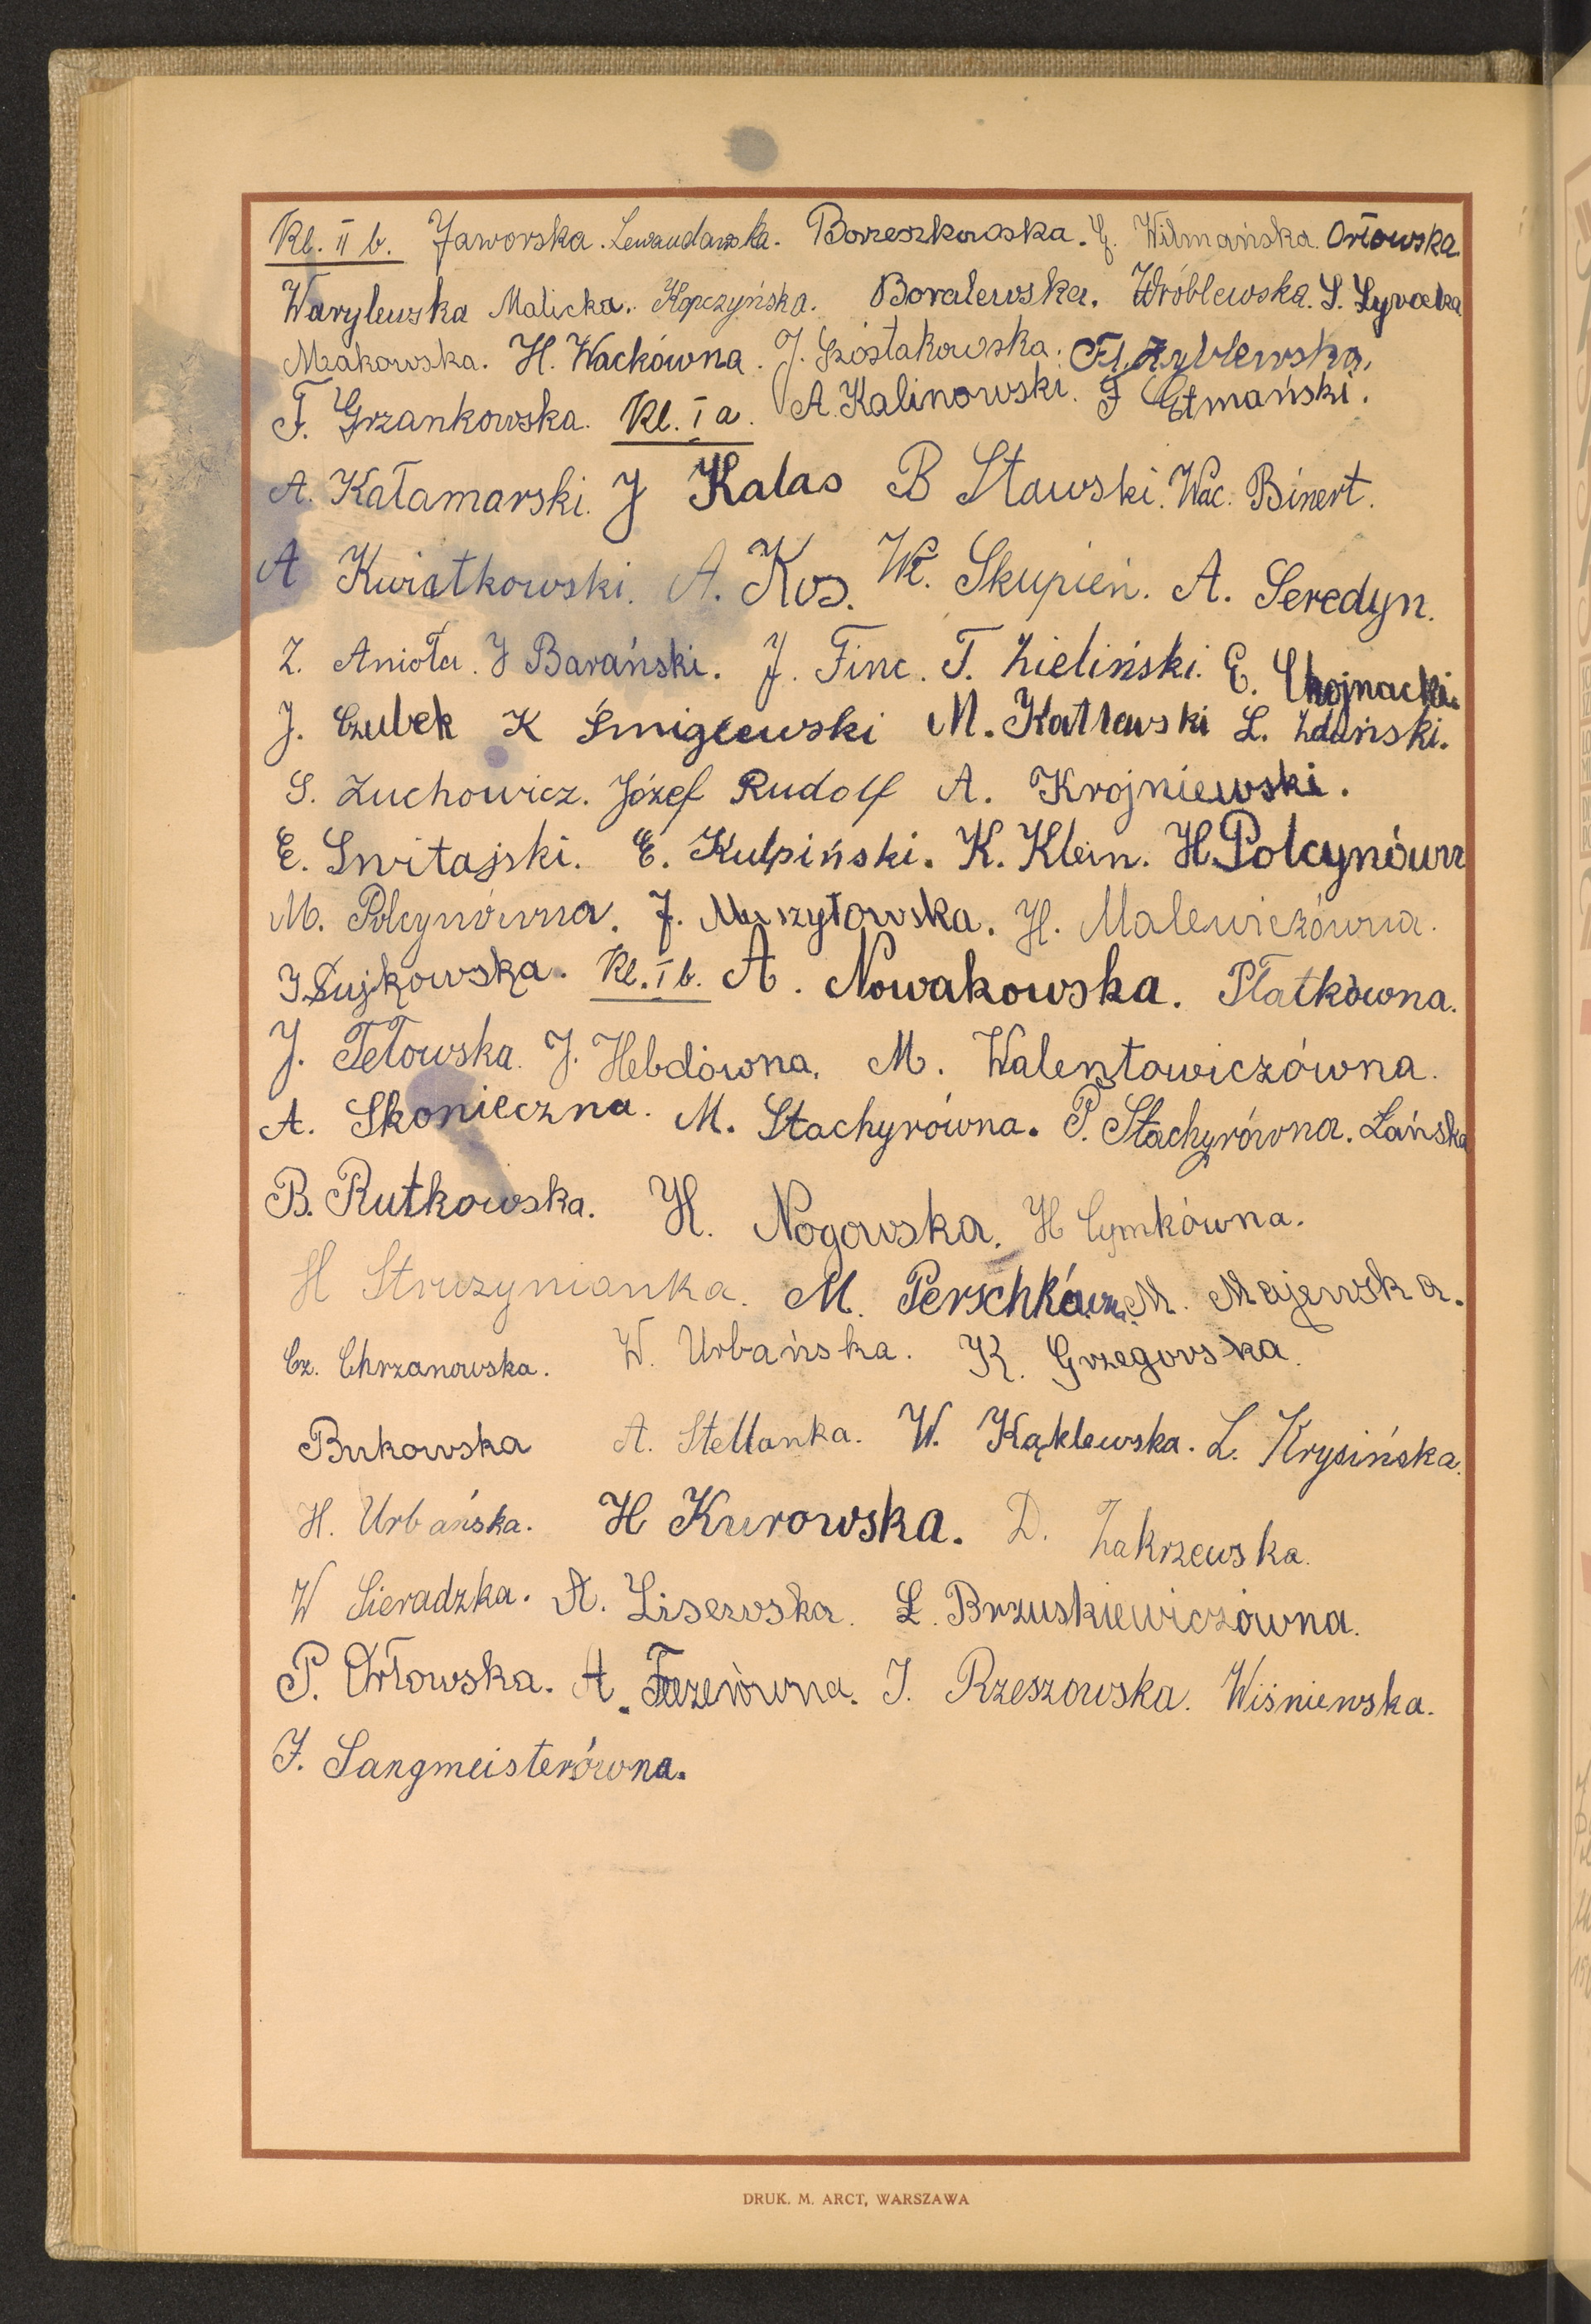 Kl. II b. Jaworska. Lewandowska. Borzeszkowska. J. Wilmańska. Orłowska
Warylewska Malicka. Kopczyńska. Boralewska. Wróblewska. S.
Makowska. H. Wackówna. J. Szóstakowska.
F. Grzankowska. Kl. I a. A. Kalinowski. F
A. Kałamarski. J Kalas B Stawski. Wac. Binert.
A Kwiatkowski. A. Kos. Wł. Skupień. A. Seredyn.
Z. Anioła. J Barański. J. Finc. T. Zieliński. E. Chojnacki.
J. Czubek K Śmiglewski M. Katlewski L. Zdański.
S. Zuchowicz. Józef Rudolf A. Krojniewski.
E. Switajski. E. Kulpiński. K. Klein. H. Polcynówn
M. Polcynówna. J. Muszytowska. H. Malewiczówna.
J. Sujkowska. Kl. I b. A. Nowakowska. Płatkówna.
J. Tetowska. J. Hebdówna. M. Walentowiczówna.
A. Skonieczna. M. Stachyrówna. P. Stachyrówna. Łańska
B. Rutkowska. H. Nogowska. H Cymkówna.
H Strużynianka. M. Perschkówna. M. Majewska.
Cz. Chrzanowska. W. Urbańska. K. Grzegorska.
Bukowska A. Stellanka. W. Kąklewska. L. Krysińska.
H. Urbańska. H Kurowska. D. Zakrzewska.
W Sieradzka. A. Lisewska. L. Brzuskiewiczówna.
P. Orłowska. A. J. Rzeszowska. Wiśniewska.
J. Sangmeisterówna.
DRUK. M. ARCT, WARSZAWA